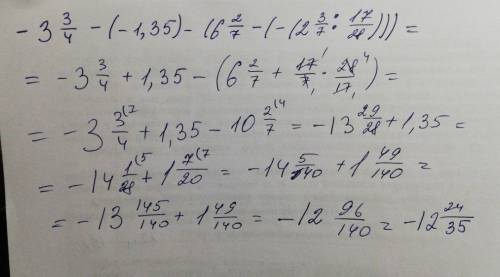 - 3 3/4 - (-1,35) - (6 2/7 - (-(2 3/7 : 17/28))) =
= -3 3/4 + 1,35 - (6 2/7 + 17¹/7₁ · 28⁴/17₁) =
= -3 3(7/4 + 1,35 - 10 2(4/7 = -13 29/28 + 1,35 =
= -14 1(5/28 + 1 7(7/20 = -14 5/140 + 1 49/140 =
= -13 145/140 + 1 49/140 = -12 96/140 = -12 24/35